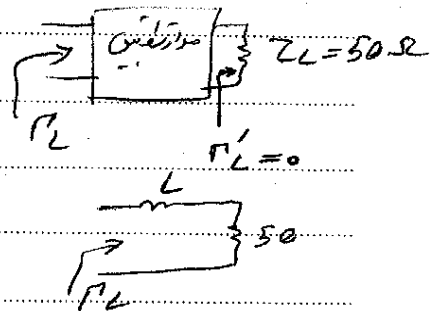 مدار تطبیق
Z_L = 50 Ω
Γ_L
Γ'_L = 0
L
50
Γ_L